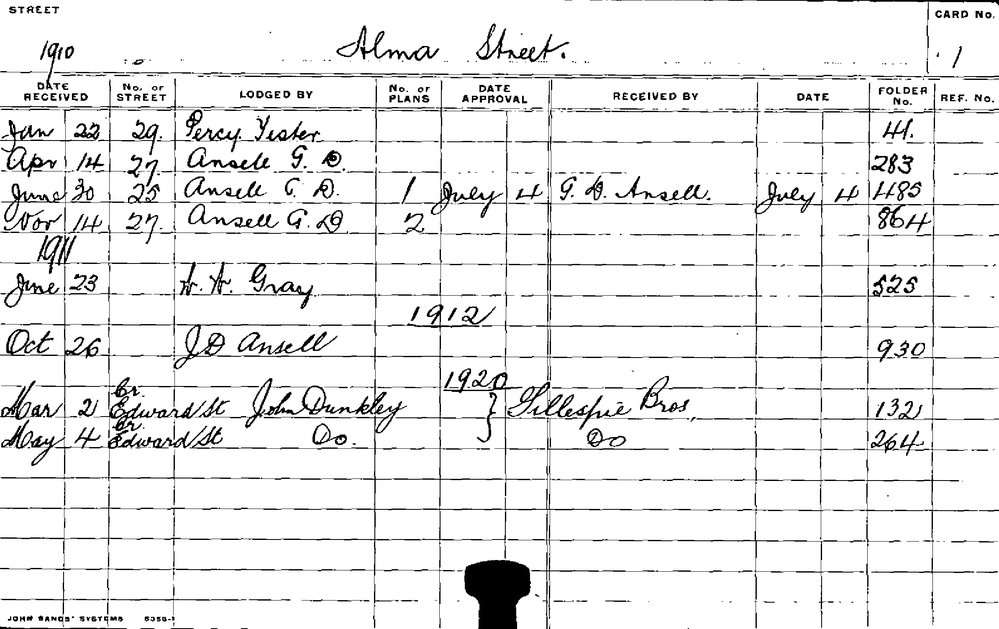 STREET
CARD No.
1910 Alma Street. 1
DATE RECEIVED No. OF STREET LODGED BY No. OF PLANS DATE APPROVAL RECEIVED BY DATE FOLDER No. REF. No.
Jan 22 29. Percy 41.
Apr 14 27. Ansell G. D. 283
June 30 25 Ansell G D. 1 July 4 G. D. Ansell. July 4 485
Nov 14 27. Ansell G. D 2 864
1911
June 23 Gray 525
1912
Oct 26 J D Ansell 930
1920
Mar 2 Cr. Edward St John Dunkley } Gillespie Bros. 132
May 4 Cr. Edward St Do. Do 264
JOHN SANDS' SYSTEMS